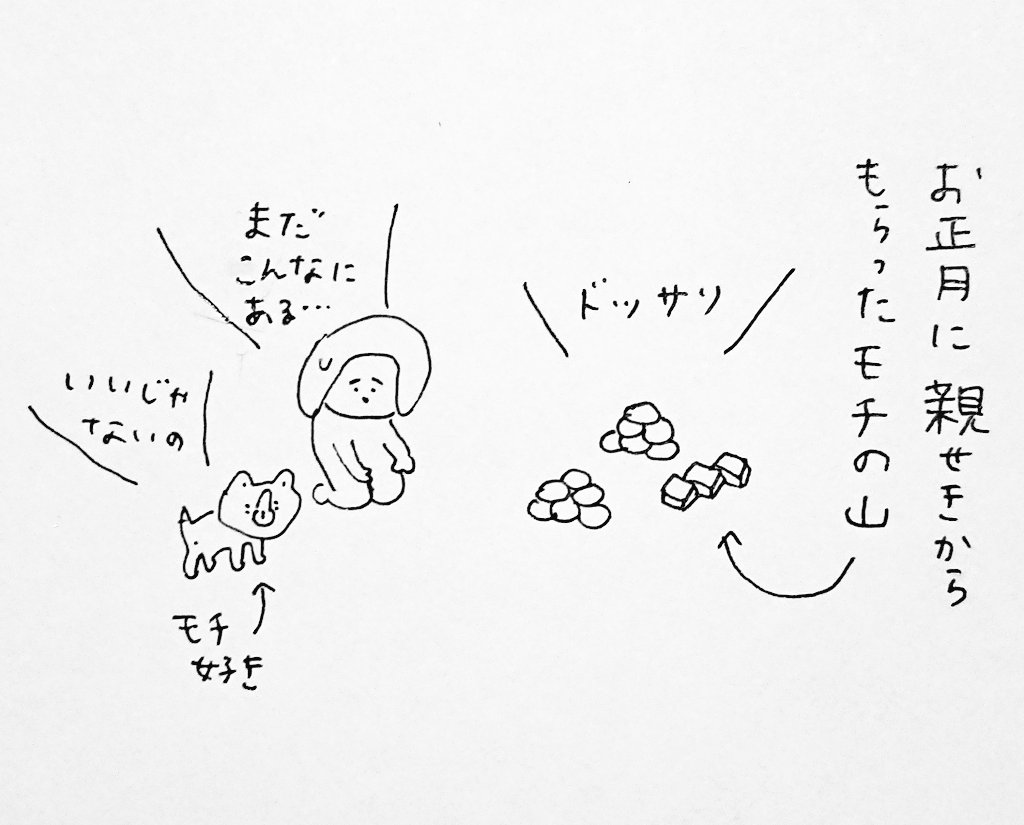 お正月に親せきから
もらったモチの山
ドッサリ
まだ
こんなに
ある…
いいじゃ
ないの
モチ
好き